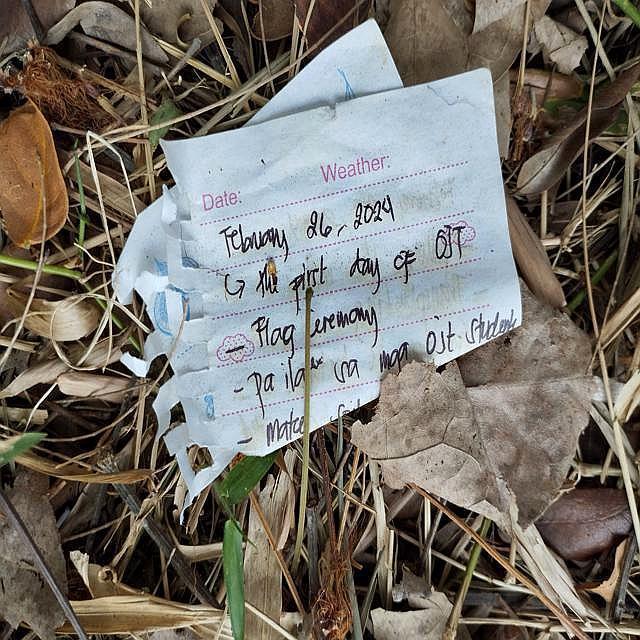 Date: Weather:
February 26, 2024
↳ the first day of OJT
- Flag ceremony
- pa ilaw sa mga OJT Student
-